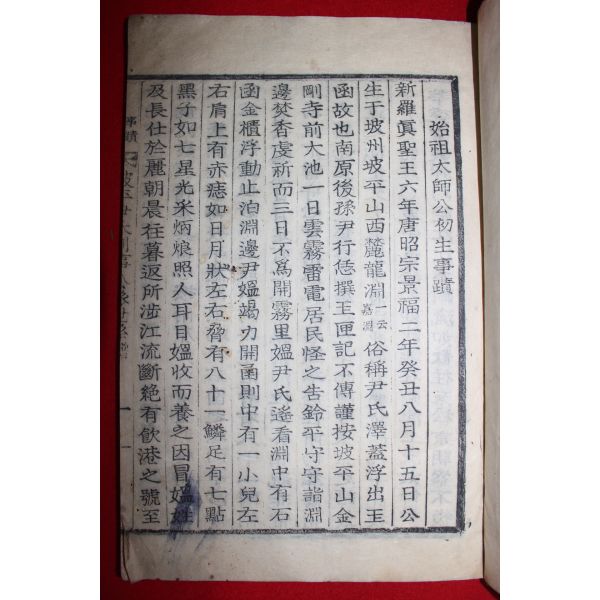 始祖太師公初生事蹟
新羅眞聖王六年唐昭宗景福二年癸丑八月十五日公
生于坡州坡平山西麓龍淵一云嘉淵俗稱尹氏澤蓋浮出玉
函故也南原後孫尹行恁撰玉匣記不傳謹按坡平山金
剛寺前大池一日雲霧雷電居民怪之告鈴平守守詣淵
邊焚香虔祈而三日不爲開霧里媼尹氏遙看淵中有石
函金櫃浮動止泊淵邊尹媼竭力開函則中有一小兒左
右肩上有赤痣如日月狀左右脅有八十一鱗足有七點
黑子如七星光采炳烺照人耳目媼收而養之因冒媼姓
及長仕於麗朝晨往暮返所涉江流斷絶有飮港之號至
事蹟
坡平尹